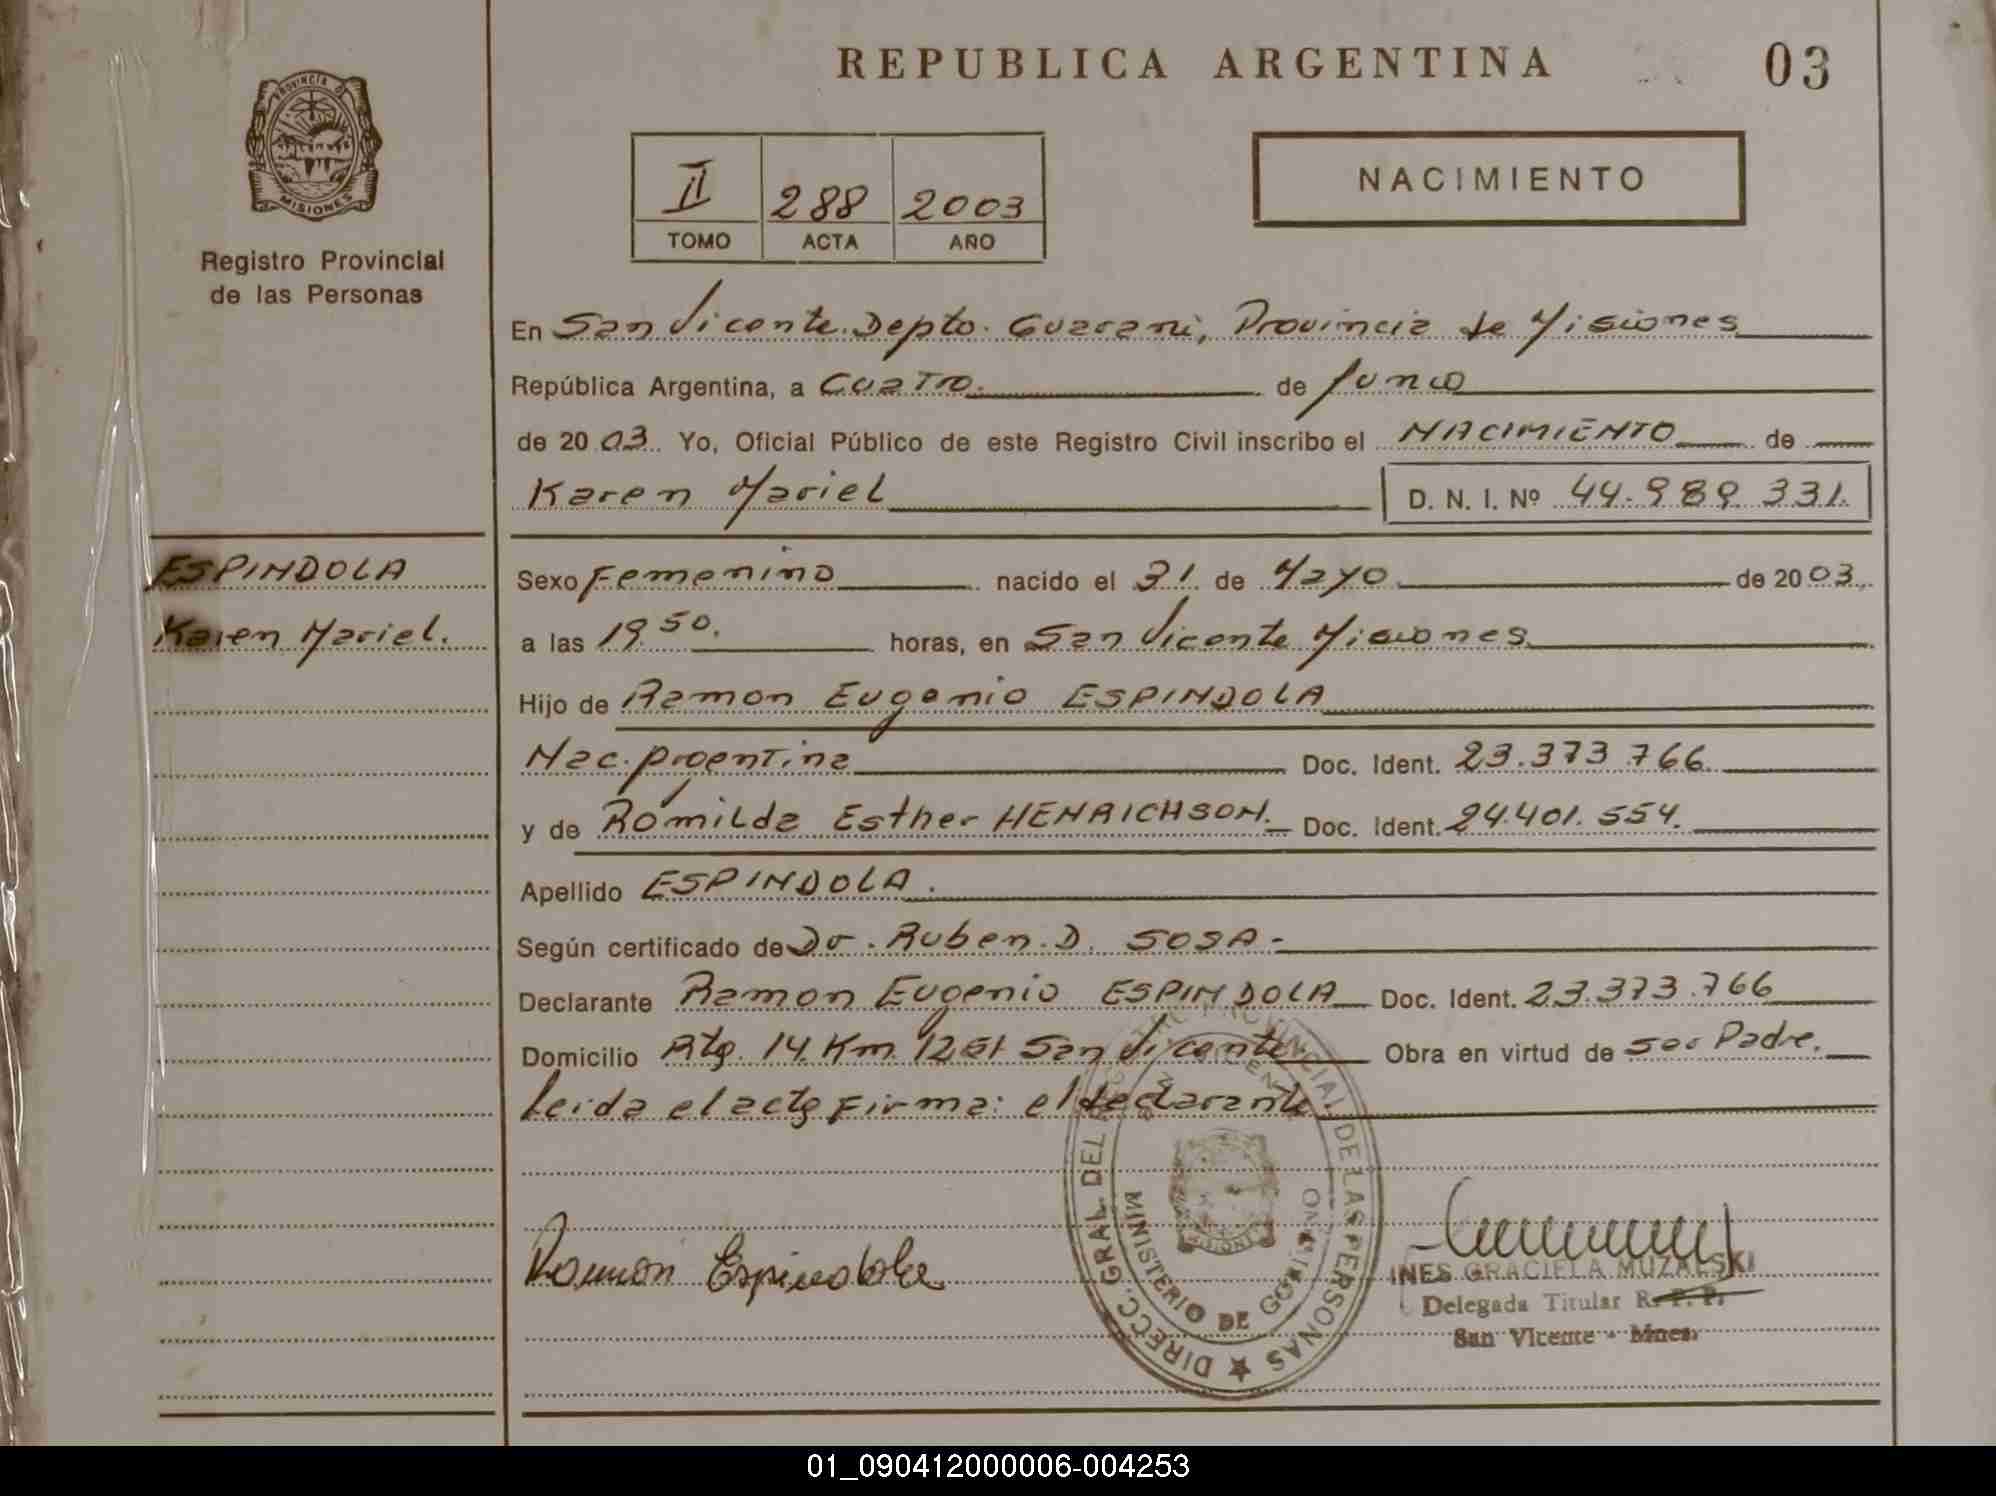 REPUBLICA ARGENTINA
03
PROVINCIA D
MISIONES
Registro Provincial
de las Personas
II 288 2003
TOMO ACTA AÑO
NACIMIENTO
En San Vicente. Depto. Guarani, Provincia de Misiones
República Argentina, a Cuatro. de Junio
de 2003. Yo, Oficial Público de este Registro Civil inscribo el NACIMIENTO de
Karen Mariel
D. N. I. Nº 44.989.331.
ESPINDOLA
Karen Mariel.
Sexo Femenino nacido el 31 de Mayo de 2003.
a las 19.50. horas, en San Vicente Misiones
Hijo de Ramon Eugenio ESPINDOLA
Nac. Argentina Doc. Ident. 23.373.766.
y de Romilda Esther HENRICHSON. Doc. Ident. 24.401.554.
Apellido ESPINDOLA.
Según certificado de Dr. Ruben. D. SOSA-
Declarante Ramon Eugenio ESPINDOLA Doc. Ident. 23.373.766
Domicilio Rta. 14 Km 1261 San Vicente Obra en virtud de ser Padre.
Leida el acta Firma: el declarante.
DIRECC. GRAL DEL PROVINCIAL DE LAS PERSONAS
MINISTERIO DE GOBIERNO
MISIONES
Ramon Espindola
INES GRACIELA MUZALSKI
Delegada Titular R. P. P.
San Vicente - Mnes.
01_090412000006-004253